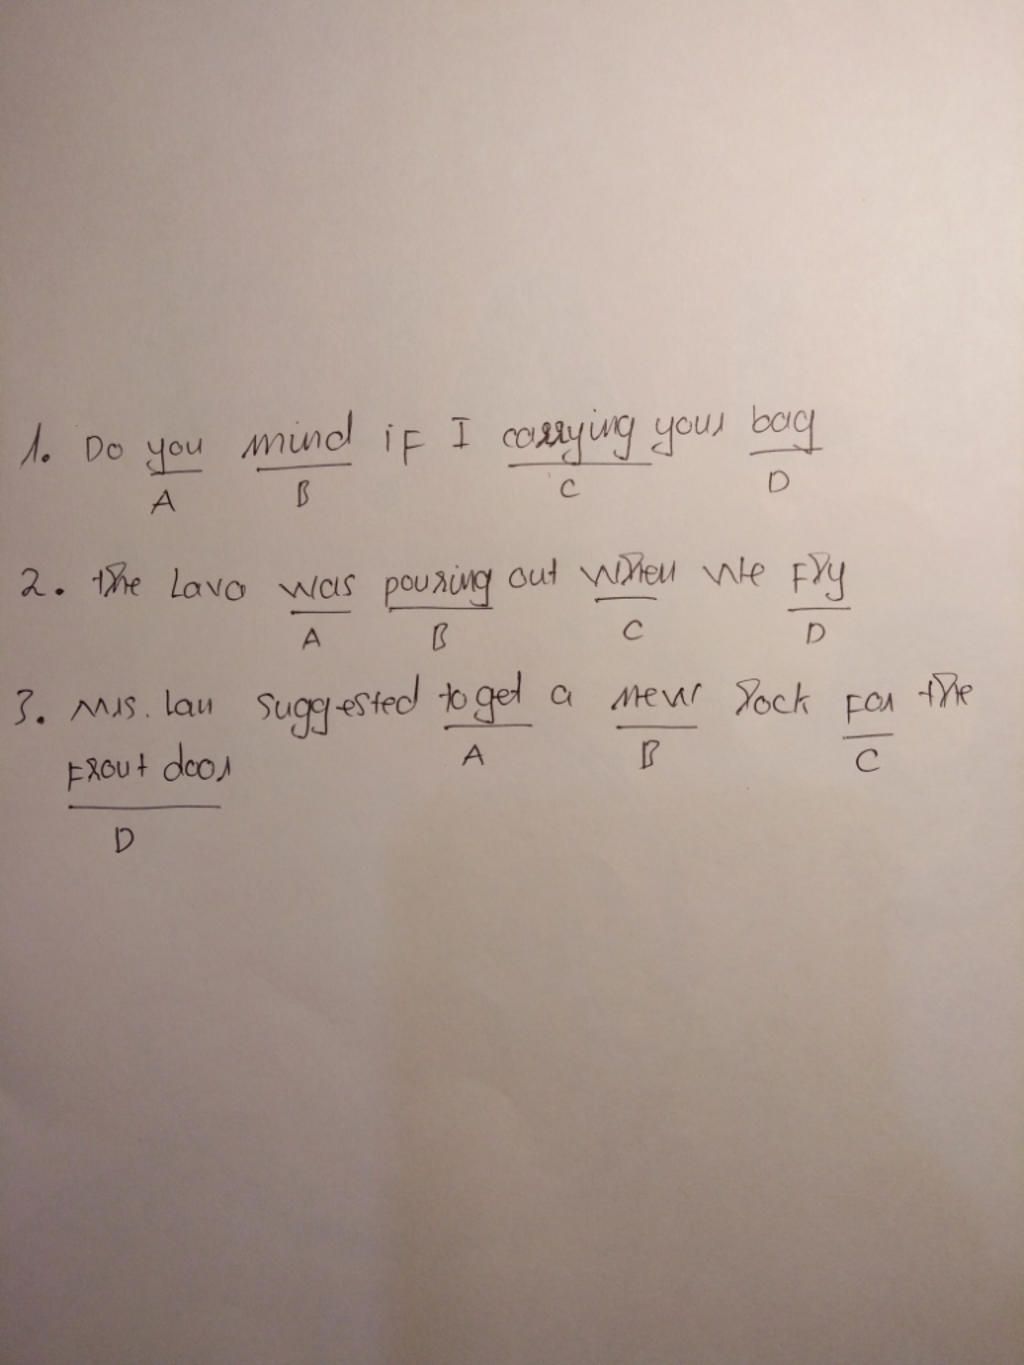 1. Do you mind if I carrying your bag
A B C D
2. the Lava was pouring out when we fly
A B C D
3. Mrs. Lan suggested to get a new lock For the
A B C
Front door
D